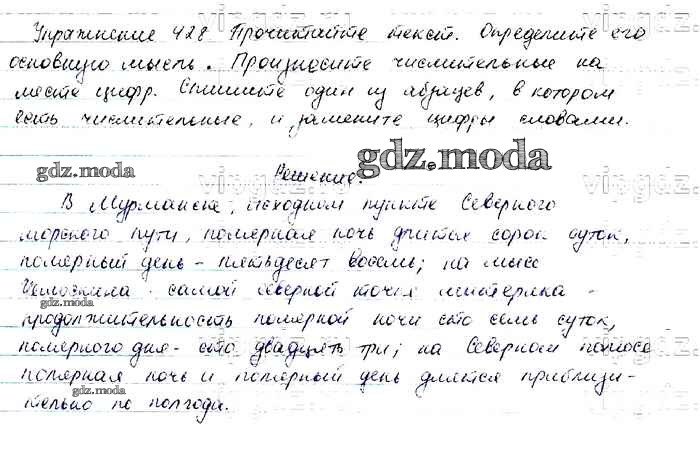 Упражнение 428 Прочитайте текст. Определите его
основную мысль. Произносите числительные на
месте цифр. Спишите один из абзацев, в котором
есть числительные, и замените цифры словами.
gdz.moda
gdz.moda
Решение.
В Мурманске, исходном пункте Северного
морского пути, полярная ночь длится сорок суток,
полярный день - пятьдесят восемь; на мысе
Челюскина - самой северной точке материка -
gdz.moda
продолжительность полярной ночи сто семь суток,
полярного дня - сто двадцать три; на Северном полюсе
полярная ночь и полярный день длятся приблизи-
gdz.moda
тельно по полгода.